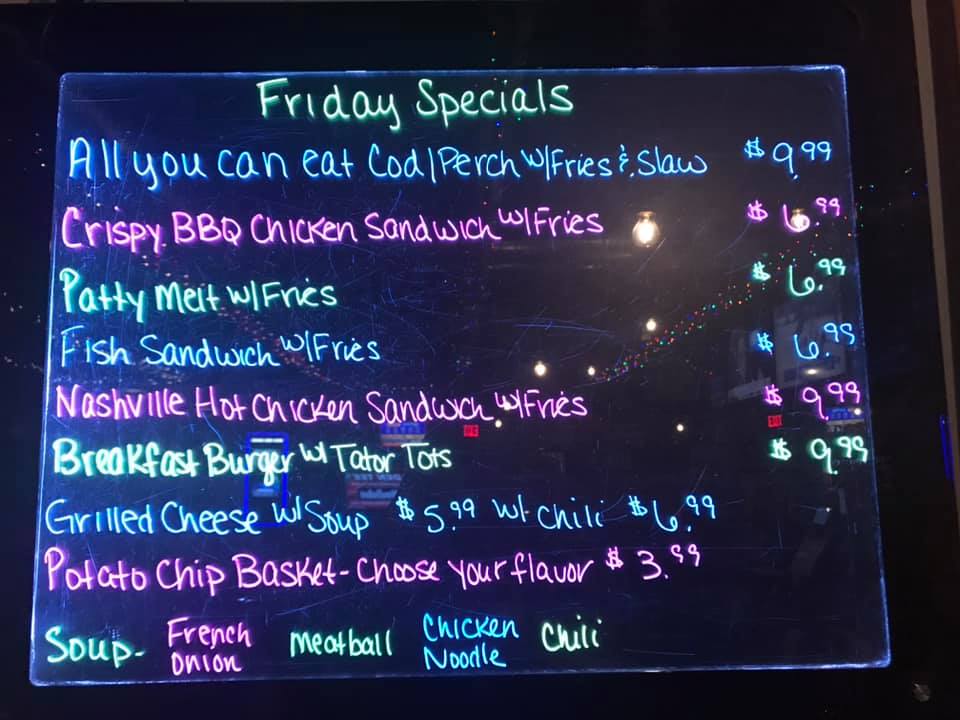 Friday Specials
All you can eat Cod/Perch w/Fries & Slaw $9.99
Crispy BBQ Chicken Sandwich w/Fries $6.99
Patty Melt w/Fries $6.99
Fish Sandwich w/Fries $6.99
Nashville Hot Chicken Sandwich w/Fries $9.99
Breakfast Burger w/ Tator Tots $9.99
Grilled Cheese w/ Soup $5.99 w/ Chili $6.99
Potato Chip Basket - Choose your flavor $3.99
Soup - French Onion Meatball Chicken Noodle Chili